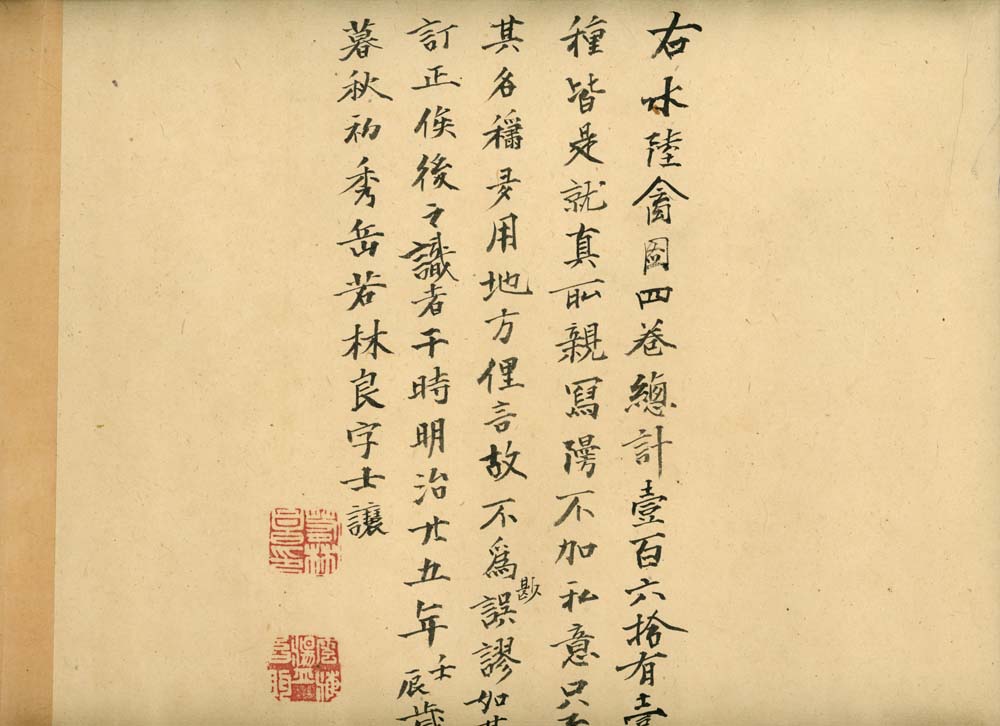 右水陸禽圖四卷總計壹百六拾有壹
種皆是就真所親寫謾不加私意只
其名稱多用地方俚言故不為尠誤謬如其
訂正俟後之識者于時明治廿五年壬辰歲
暮秋初秀岳若林良字士讓